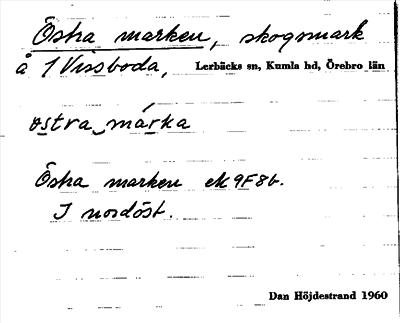 Östra marken, skogsmark
å 1 Vissboda, Lerbäcks sn, Kumla hd, Örebro län
ostra márka
Östra marken ek 9F8b.
I nordöst.
Dan Höjdestrand 1960